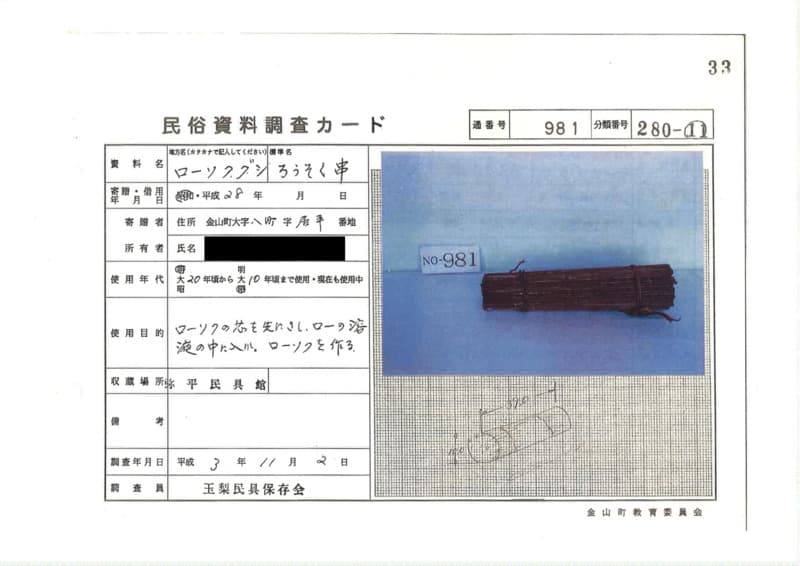 33
民俗資料調査カード
通番号 981 分類番号 280-11
資料名 地方名(カタカナで記入してください) 標準名
ローソクグシ ろうそく串
寄贈・借用年月日 昭和・平成 28 年 月 日
寄贈者 住所 金山町大字 八町 字 居平 番地
所有者 氏名
使用年代 明 大 昭 20 年頃から 明 大 昭 10 年頃まで使用・現在も使用中
使用目的 ローソクの芯を先にさし、ローの溶
液の中に入れ、ローソクを作る
収蔵場所 弥平民具館
備考
調査年月日 平成 3 年 11 月 2 日
調査員 玉梨民具保存会
NO-981
390
100
金山町教育委員会